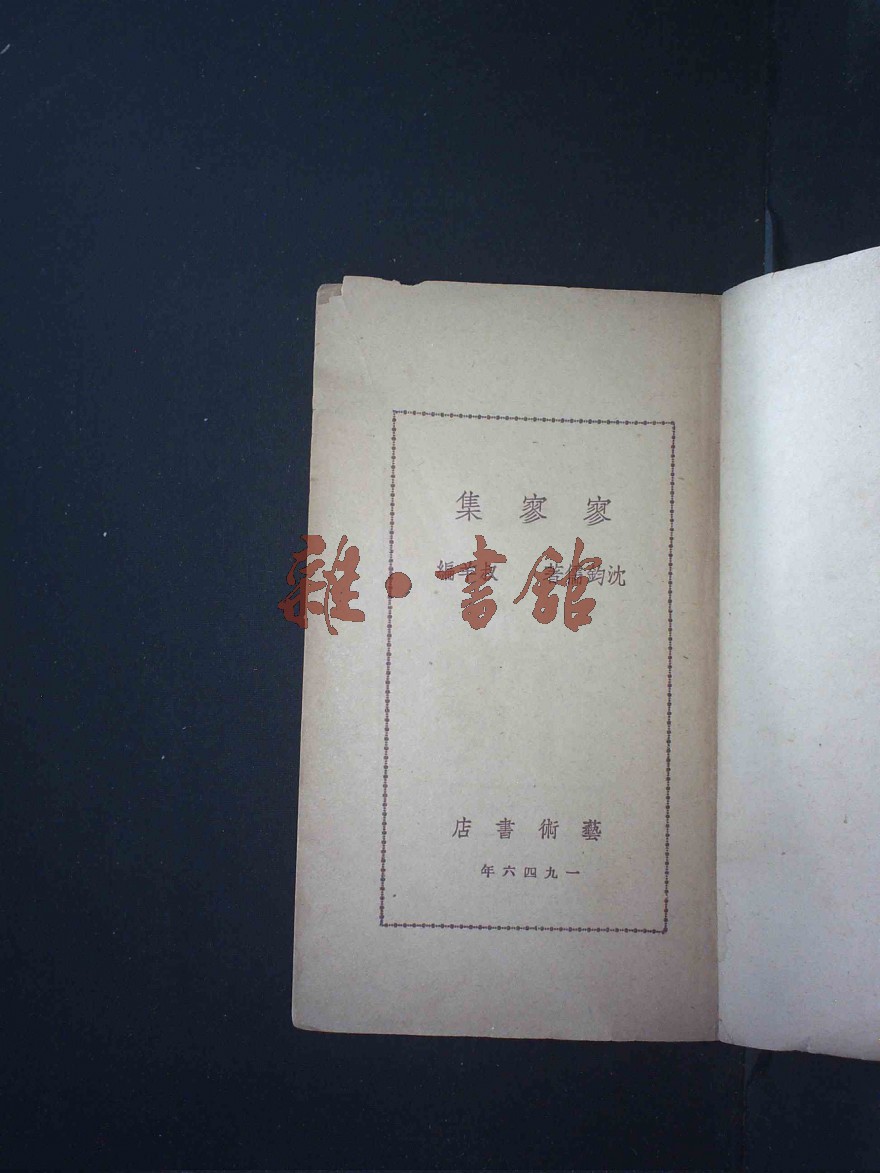 寥寥集
沈鈞儒著 叔羊編
藝術書店
一九四六年
雜·書館